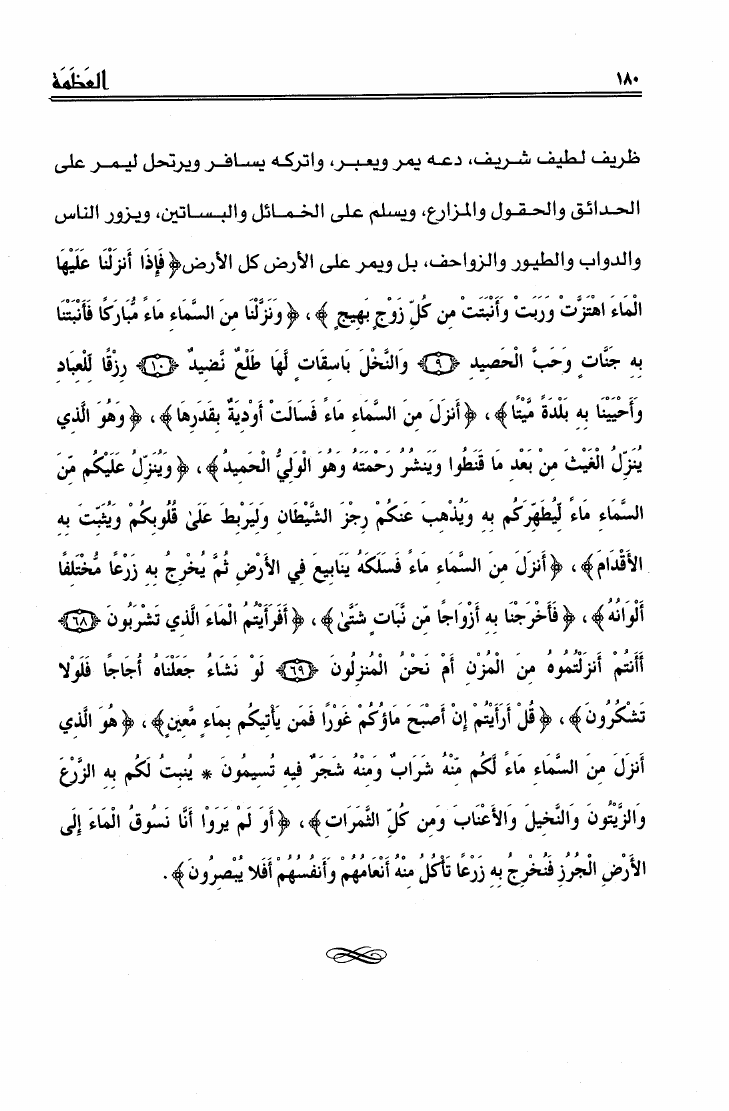 ١٨٠ العَظَمَة
ظريف لطيف شريف، دعه يمر ويعبر، واتركه يسافر ويرتحل ليمر على
الحدائق والحقول والمزارع، ويسلم على الخمائل والبساتين، ويزور الناس
والدواب والطيور والزواحف، بل ويمر على الأرض كل الأرض﴿ فَإِذَا أَنزَلْنَا عَلَيْهَا
الْمَاءَ اهْتَزَّتْ وَرَبَتْ وَأَنْبَتَتْ مِن كُلِّ زَوْجٍ بَهِيجٍ ﴾، ﴿ وَنَزَّلْنَا مِنَ السَّمَاءِ مَاءً مُّبَارَكًا فَأَنْبَتْنَا
بِهِ جَنَّاتٍ وَحَبَّ الْحَصِيدِ ﴿٩﴾ وَالنَّخْلَ بَاسِقَاتٍ لَّهَا طَلْعٌ نَّضِيدٌ ﴿١٠﴾ رِزْقًا لِّلْعِبَادِ
وَأَحْيَيْنَا بِهِ بَلْدَةً مَّيْتًا﴾، ﴿أَنزَلَ مِنَ السَّمَاءِ مَاءً فَسَالَتْ أَوْدِيَةٌ بِقَدَرِهَا﴾، ﴿ وَهُوَ الَّذِي
يُنَزِّلُ الْغَيْثَ مِنْ بَعْدِ مَا قَنَطُوا وَيَنشُرُ رَحْمَتَهُ وَهُوَ الْوَلِيُّ الْحَمِيدُ﴾، ﴿ وَيُنَزِّلُ عَلَيْكُم مِّنَ
السَّمَاءِ مَاءً لِّيُطَهِّرَكُم بِهِ وَيُذْهِبَ عَنكُمْ رِجْزَ الشَّيْطَانِ وَلِيَرْبِطَ عَلَىٰ قُلُوبِكُمْ وَيُثَبِّتَ بِهِ
الأَقْدَامَ﴾، ﴿أَنزَلَ مِنَ السَّمَاءِ مَاءً فَسَلَكَهُ يَنَابِيعَ فِي الأَرْضِ ثُمَّ يُخْرِجُ بِهِ زَرْعًا مُّخْتَلِفًا
أَلْوَانُهُ﴾، ﴿ فَأَخْرَجْنَا بِهِ أَزْوَاجًا مِّن نَّبَاتٍ شَتَّىٰ﴾، ﴿أَفَرَأَيْتُمُ الْمَاءَ الَّذِي تَشْرَبُونَ ﴿٦٨﴾
أَأَنتُمْ أَنزَلْتُمُوهُ مِنَ الْمُزْنِ أَمْ نَحْنُ الْمُنزِلُونَ ﴿٦٩﴾ لَوْ نَشَاءُ جَعَلْنَاهُ أُجَاجًا فَلَوْلا
تَشْكُرُونَ﴾، ﴿ قُلْ أَرَأَيْتُمْ إِنْ أَصْبَحَ مَاؤُكُمْ غَوْرًا فَمَن يَأْتِيكُم بِمَاءٍ مَّعِينٍ﴾، ﴿ هُوَ الَّذِي
أَنزَلَ مِنَ السَّمَاءِ مَاءً لَّكُم مِّنْهُ شَرَابٌ وَمِنْهُ شَجَرٌ فِيهِ تُسِيمُونَ * يُنبِتُ لَكُم بِهِ الزَّرْعَ
وَالزَّيْتُونَ وَالنَّخِيلَ وَالأَعْنَابَ وَمِن كُلِّ الثَّمَرَاتِ﴾، ﴿أَوَ لَمْ يَرَوْا أَنَّا نَسُوقُ الْمَاءَ إِلَى
الأَرْضِ الْجُرُزِ فَنُخْرِجُ بِهِ زَرْعًا تَأْكُلُ مِنْهُ أَنْعَامُهُمْ وَأَنفُسُهُمْ أَفَلا يُبْصِرُونَ﴾.